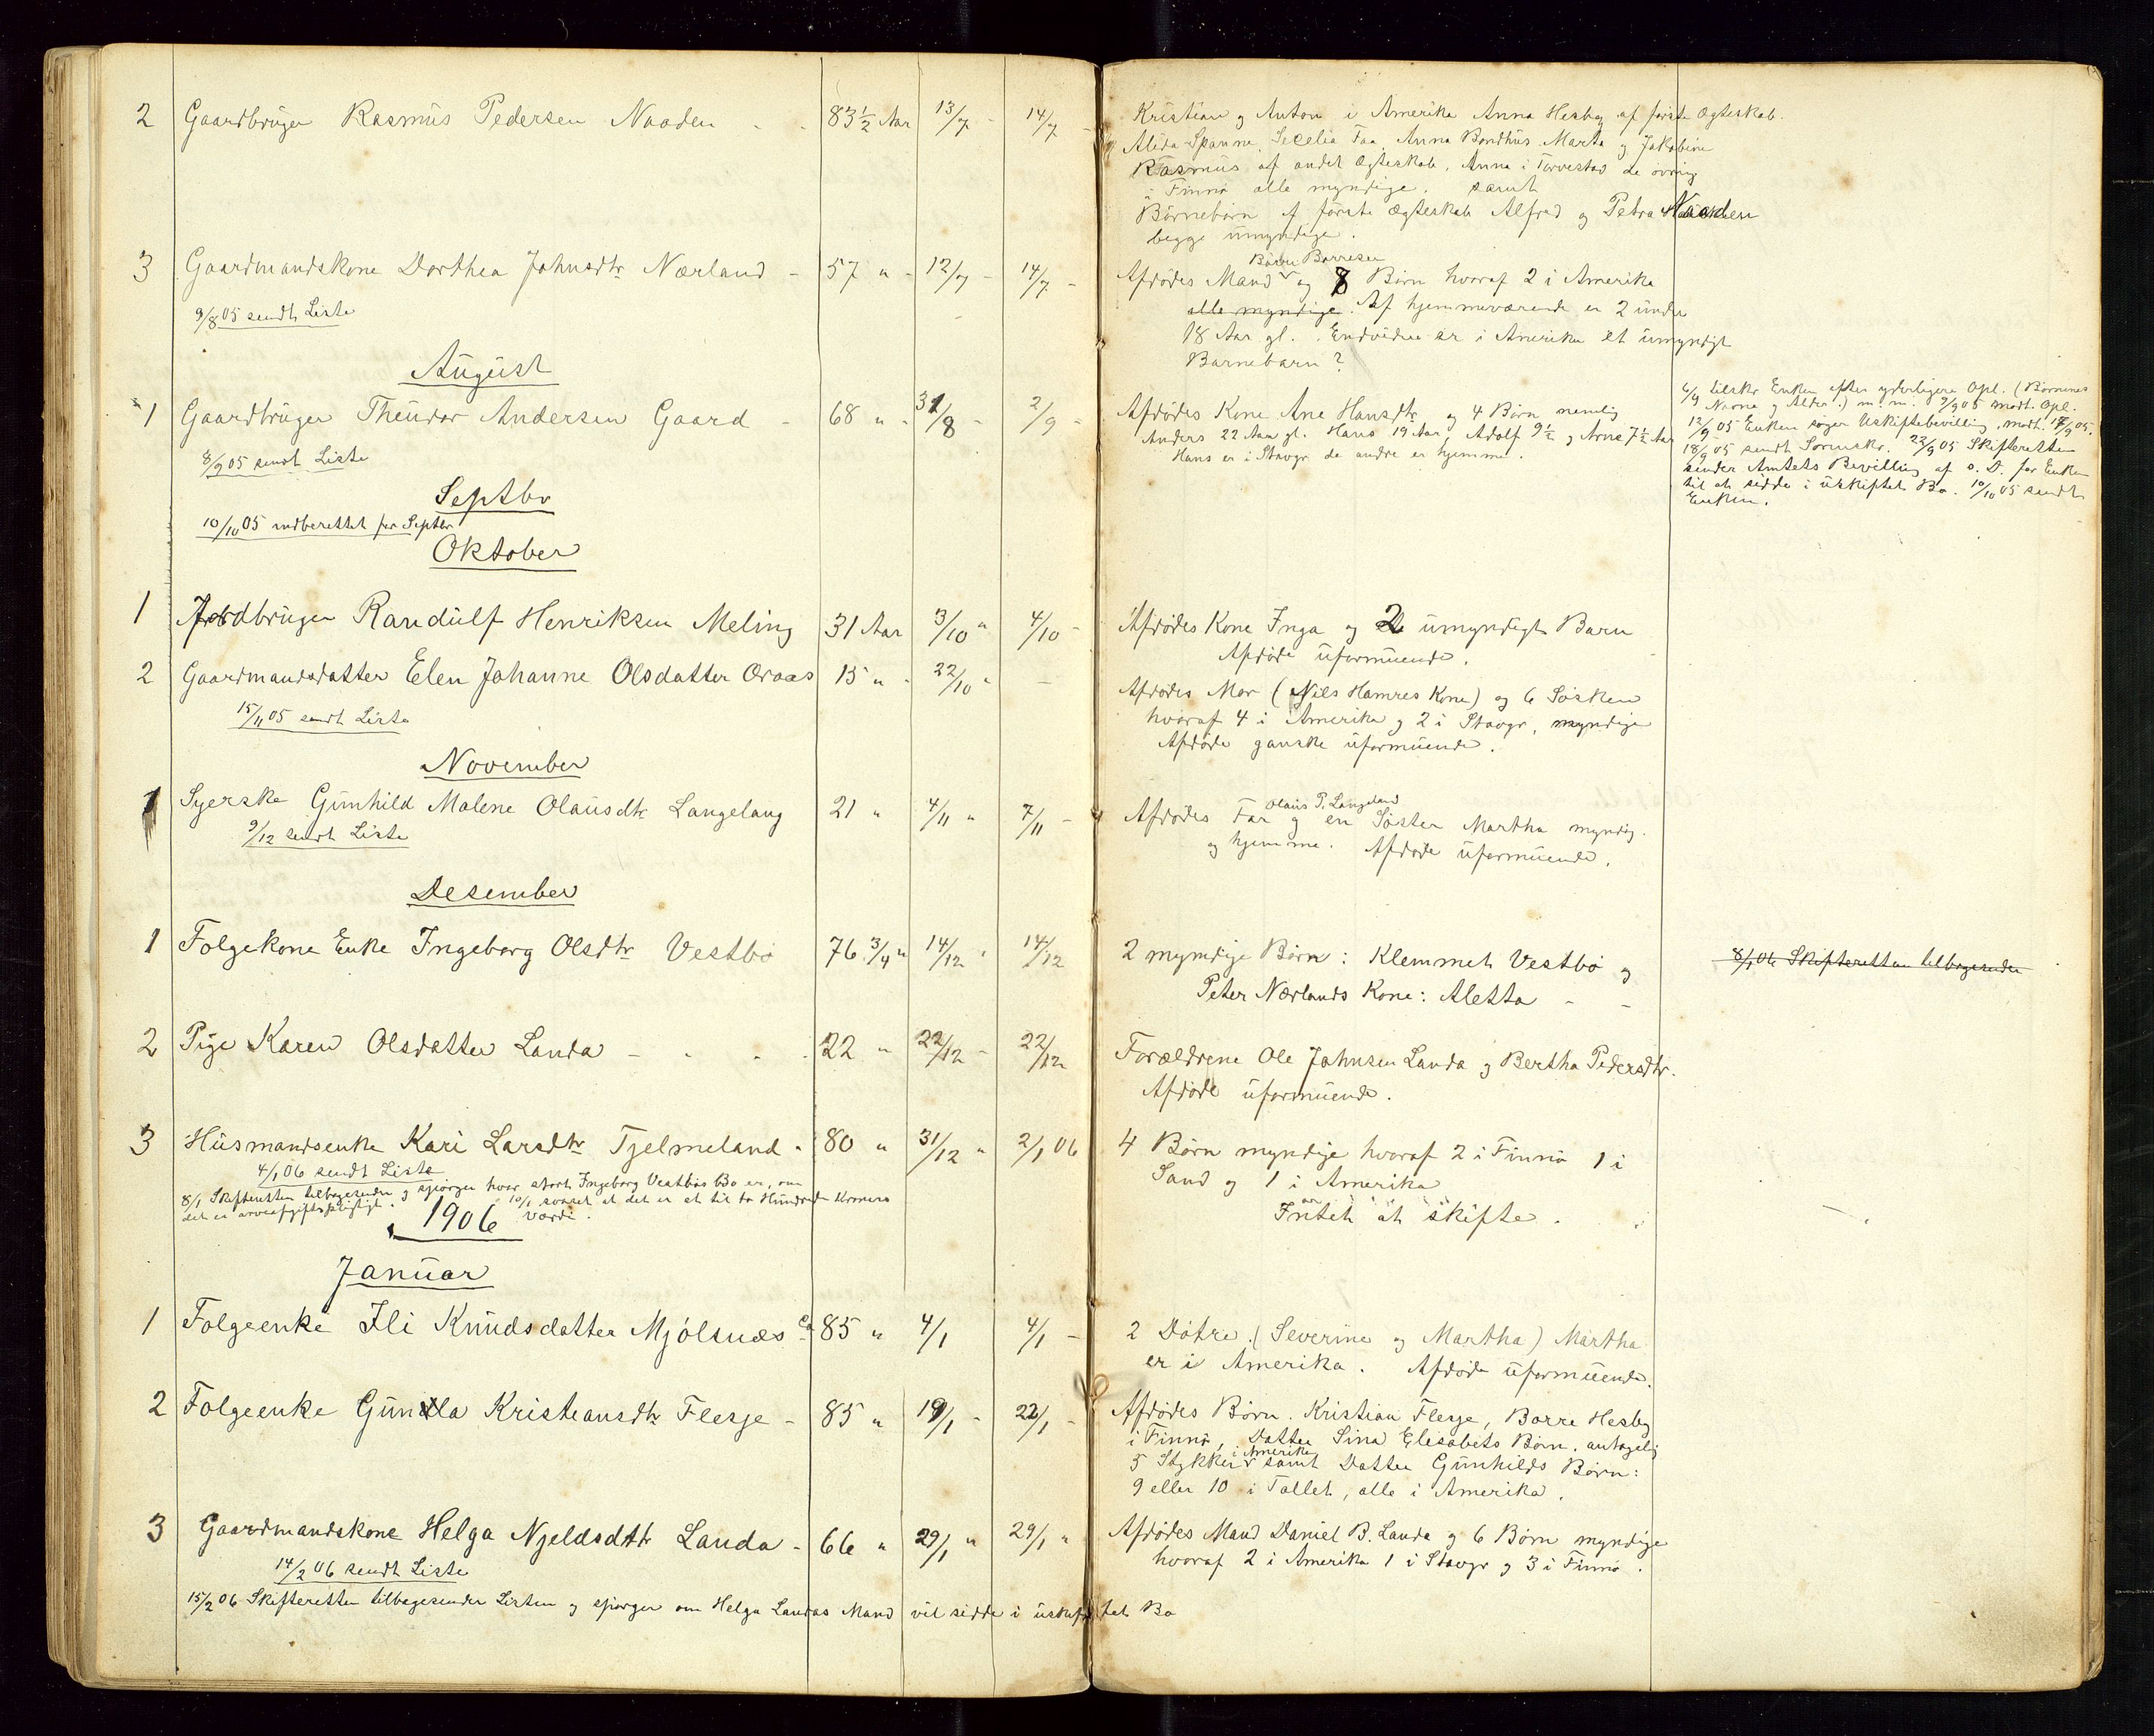 2 Gaardbrüger Rasmüs Pedersen Naaden - - 83½ Aar 13/7 - 14/7 -
Kristian og Anton i Amerika Anna Hesby af første Ægteskab.
Alida Spanne, Secelia Faa, Anna Bondhüs Marta og Jakobine
Rasmüs af andet Ægteskab. Anna i Torvestad de øvrig
i Finnø alle myndige. samt
Børnebørn af første Ægteskab Alfred og Petra Naaden
begge ümyndige.
3 Gaardmandskone Dorthea Johnsdtr Nærland - 57 " - 12/7 - 14/7 -
9/8 05 sendt Liste
Børre Børresen
Afdødes Mand og 8 Børn hvoraf 2 i Amerika
alle myndige. Af hjemmeværende er 2 ünder
18 Aar gl. Endvidere er i Amerika et ümyndigt
Barnebarn?
August
1 Gaardbrüger Theüdor Andersen Gaard - 68 " - 31/8 - 2/9 -
8/9 05 sendt Liste
Afdødes Kone Ane Hansdtr og 4 Børn nemlig
Anders 22 Aar gl. Hans 19 Aar, Adolf 9½ og Arne 7½ Aar
Hans er i Stavgr. de andre er hjemme.
6/9 tilskr Enken efter yderligere Opl. (Børnenes
Navne og Alder.) m.m. 9/9 05 modt. Opl.
12/9 05 Enken søger Uskiftebevilling, modt. 17/9 05.
18/9 05 sendt Sorenskr. 23/9 05 Skifteretten
sender Amtets Bevilling af s. D. for Enken
til at sidde i üskiftet Bo. 10/10 05 sendt
Enken.
Septbr
10/10 05 indberettet for Septbr
Oktober
1 Jordbrüger Randülf Henriksen Meling 31 Aar 3/10 " 4/10 -
Afdødes Kone Inga og 2 ümyndigt Barn
Afdøde üformüende.
2 Gaardmandsdatter Elen Johanne Olsdatter Qraas 15 " - 22/10 " -
15/11 05 sendt Liste
Afdødes Mor (Nils Hamres Kone) og 6 Søsken
hvoraf 4 i Amerika og 2 i Stavgr, myndige
Afdøde ganske üformüende.
November
1 Syerske Günhild Malene Olaüsdtr Langelang 21 " 4/11 " 7/11 -
9/12 sendt Liste
Olaüs P. Langeland
Afdødes Far og en Søster Martha myndig.
og hjemme. Afdøde üformüende.
Desember
1 Folgekone Enke Ingeborg Olsdtr Vestbø 76 3/4 " 14/12 " 14/12
2 myndige Børn: Klemmet Vestbø og
Peter Nærlands Kone: Aletta - -
8/1 06 Skifteretten tilbagesender
2 Pige Karen Olsdatter Landa - - - - 22 " 22/12 - 22/12
Forældrene Ole Johnsen Landa og Bertha Pedersdtr.
Afdøde üformüende.
3 Hüsmandsenke Kari Larsdtr Tjelmeland - 80 " 31/12 " 2/1 06
4/1 06 sendt Liste
4 Børn myndige hvoraf 2 i Finnø 1 i
Sand og 1 i Amerika
Intet at skifte.
8/1 Skifteretten tilbagesender og spørger hvor stort Ingeborg Vestbøs Bo er, om
det er arveafgiftspligtigt. 10/1 svaret at det er et til to Hündrede Kroners
Værdi.
1906
Januar
1 Folgeenke Ili Knüdsdatter Mjølsnæs ca 85 " 4/1 4/1 -
2 Døtre. (Severine og Martha) Martha
er i Amerika. Afdøde üformüende.
2 Folgeenke Günla Kristiansdtr Flesje - 85 " 19/1 - 22/1 -
Afdødes Børn. Kristian Flesje, Børre Hesby
i Finnø, Datter Sina Elisabets Børn. antagelig
i Amerika
5 Stykker samt Datter Günhilds Børn:
9 eller 10 i Tallet, alle i Amerika.
3 Gaardmandskone Helga Njeldsdttr Landa - 66 " 29/1 " 29/1 "
14/2 06 sendt Liste
Afdødes Mand Daniel B. Landa og 6 Børn myndige
hvoraf 2 i Amerika 1 i Stavgr og 3 i Finnø.
15/2 06 Skifteretten tilbagesender Listen og spørger om Helga Landas Mand vil sidde i üskiftet Bo